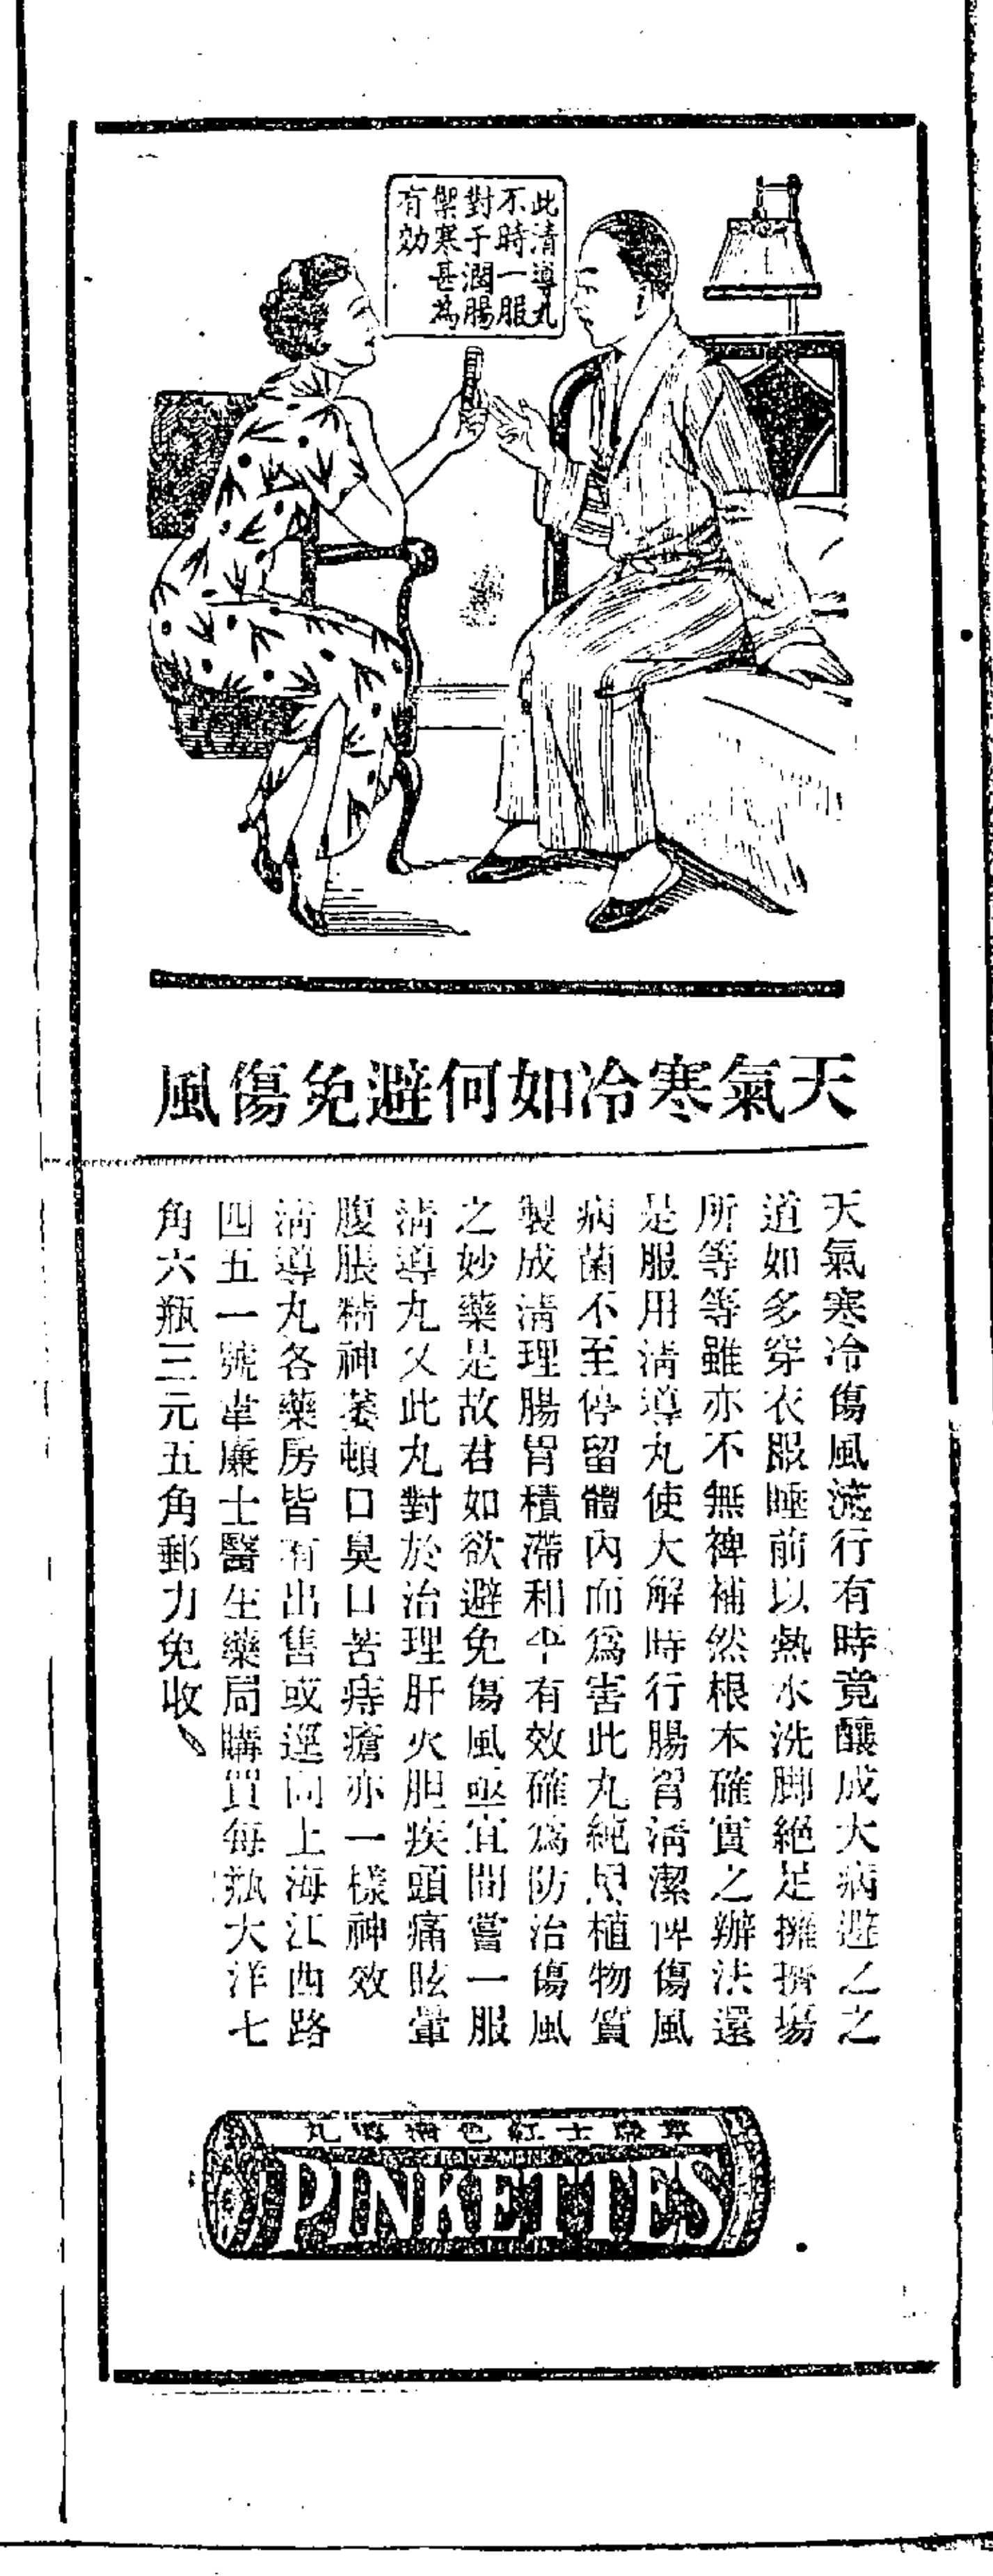 此清導丸
不時一服
對于潤腸
禦寒甚為
有効
天氣寒冷如何避免傷風
天氣寒冷傷風流行有時竟釀成大病避之之
道如多穿衣服睡前以熱水洗脚絕足擁擠場
所等等雖亦不無裨補然根本確實之辦法還
是服用清導丸使大解時行腸胃清潔俾傷風
病菌不至停留體內而爲害此丸純用植物質
製成清理腸胃積滯和平有效確爲防治傷風
之妙藥是故君如欲避免傷風亟宜間嘗一服
清導丸又此丸對於治理肝火胆疾頭痛眩暈
腹脹精神萎頓口臭口苦痔瘡亦一樣神效
清導丸各藥房皆有出售或逕向上海江西路
四五一號韋廉士醫生藥局購買每瓶大洋七
角六瓶三元五角郵力免收
韋廉士紅色清導丸
PINKETTES